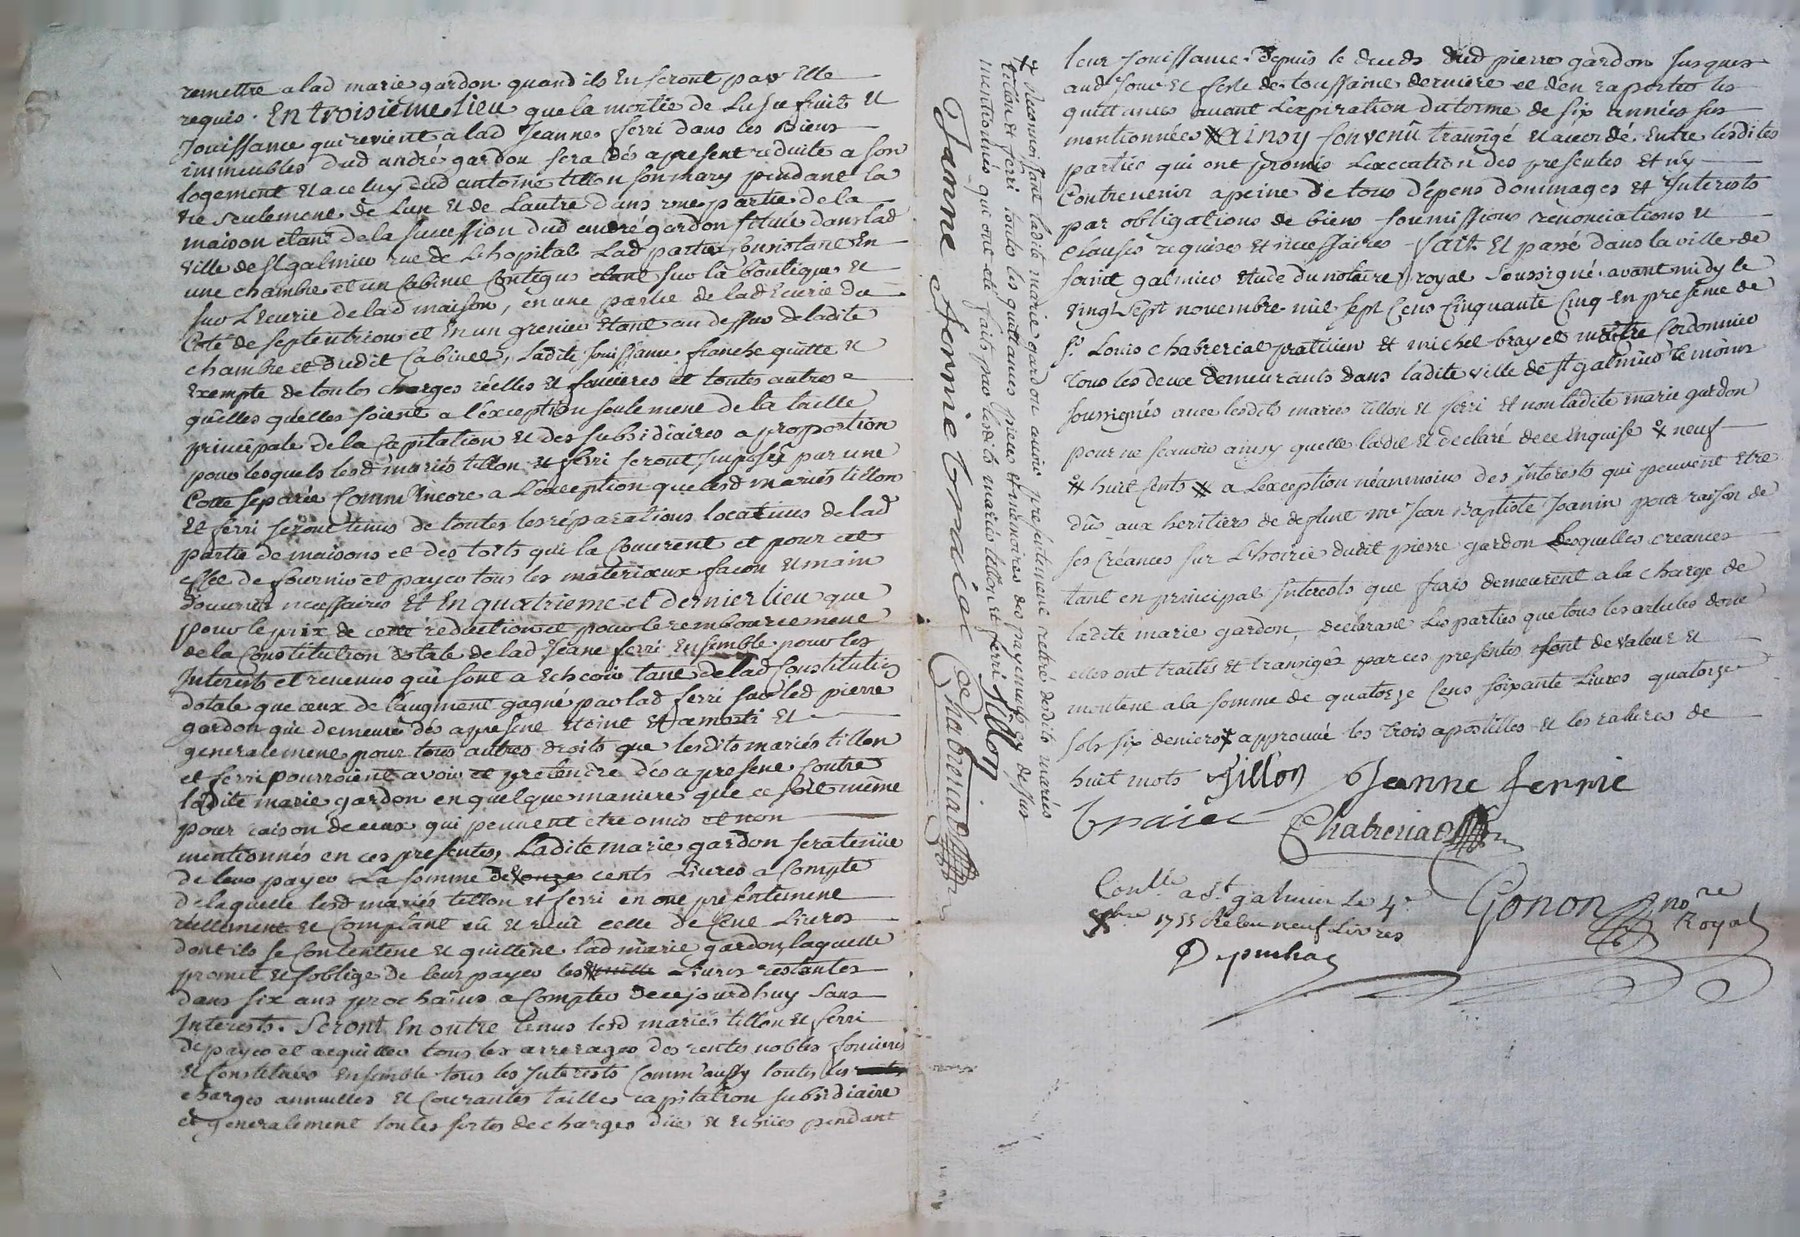 remettre a lad marie gardon quand ils En seront par Elle
requis. En troisieme lieu que la moitié de L'usufruit et
Jouissance qui revient a lad Jeanne ferri dans les Biens
immeubles dud andré gardon sera dés apresent reduite a son
logement et a celuy dud antoine tillon son mary pendant la
vie seulement de L'un et de L'autre dans une partie de la
maison etant de la succession dud andré gardon situeé dans lad
ville de st galmier rue de L'hopital Lad partie Consistant En
une chambre et un Cabinet Contigus etant sur la boutique et
sur L'ecurie de lad maison, en une partie de lad Ecurie du
Coté de septentrion et En un grenier etant au dessus de ladite
chambre et dudit Cabinet, Ladite Jouissance franche quitte et
Exempte de toutes charges réelles et foncieres et toutes autres
quelles quelles soient a l'exception seulement de la taille
principale de la Capitation et des subsidiaires a proportion
pour lesquels lesd mariés tillon et ferri seront Imposés par une
Cotte separée Comm'Encore a L'exception que lesd mariés tillon
et ferri seront tenus de toutes les réparations locatives de lad
partie de maisons et des toits qui la Couvrent et pour cet
effet de fournir et payer tous les matériaux facon et main
d'ouvrier necessaires Et En quatrieme et dernier lieu que
pour le prix de cette réduction et pour le remboursement
de la Constitution dotale de lad Jeane ferri Ensemble pour les
Interests et revenus qui sont a Echeoir tant de lad Constitution
dotale que ceux de l'augment gagné par lad ferri sur led pierre
gardon qui demeure dés apresent eteint et amorti et
generalement pour tous autres droits que lesdits mariés tillon
et ferri pourroient avoir et pretendre dés apresent Contre
ladite marie gardon en quelque maniere que ce soit même
pour raison de ceux qui peuvent etre omis et non
mentionnés en ces presentes, Ladite marie gardon sera tenüe
de leur payer La somme de onze cents Livres a Compte
de laquelle lesd mariés tillon et ferri en ont présentement
réellement et Comptant eû et reçû celle de Cent Livres
dont ils se Contentent et quittent lad marie gardon, laquelle
promet et s'oblige de leur payer les mille Livres restantes
dans six ans prochains a Compter de cejourdhuy sans
Interests. Seront En outre tenus lesd mariés tillon et ferri
de payer et acquitter tous les arrerages des rentes nobles foncieres
et Constituées Ensemble tous les Interests Comm'aussy toutes les
charges annuelles et Courantes tailles capitation subsidiaire
et generalement toutes sortes de charges düe et echües pendant
※ reconnoissant ladite marie gardon avoir presentement retiré desdits mariés
tillon et ferri touts les quittances pieces et memoires des payements cy dessus
mentionnes que ont eté faits par lesdits mariés tillon et ferri Tillon
Jeanne ferrie braiet Chabrerial
leur Jouissance depuis le deceds dud pierre gardon Jusques
aud Jour et feste de toussaint derniere et d'en raporter les
quittances avant L'expiration du terme de six années sus
mentionneés ※ ainsy Convenû transigé et accordé Entre lesdites
parties qui ont promis L'execution des presentes et n'y
Contrevenir a peine de tous dépens dommages et Interests
par obligations de biens soumissions rénonciations et
clauses requises et necessaires fait Et passé dans la ville de
saint galmier etude du notaire royal soussigné avant midy le
vingt sept novembre mil sept Cens Cinquante Cinq En presence de
sr. Louis Chabrerial praticien et michel brayet maître Cordonnier
tous les deux demeurants dans ladite ville de st galmier temoins
soussignés avec lesdits mariés tillon et ferri et non ladite marie gardon
pour ne scauoir ainsy quelle la dit et declaré de ce Enquise ※ neuf
※ huit Cents ※ a L'exception néanmoins des Interests qui peuvent etre
dûs aux heritiers de deffunt mr Jean Baptiste Joanin pour raison de
ses créances sur L'hoirie dudit pierre gardon Lesquelles creances
tant en principal Interests que frais demeurent a la charge de
ladite marie gardon, declarant Les parties que tous les articles dont
elles ont traités et transigés par ces presentes sont de valeur et
montent a la somme de quatorze Cens soixante Livres quatorze
sols six deniers ※ approuvé les trois apostilles et les ratures de
huit mots Tillon Jeanne ferrie
braiet Chabrerial
Conllé a St galmier Le 4e
xbre 1755 Receu neuf Livres
Depunhac
Gonon nore
Royal